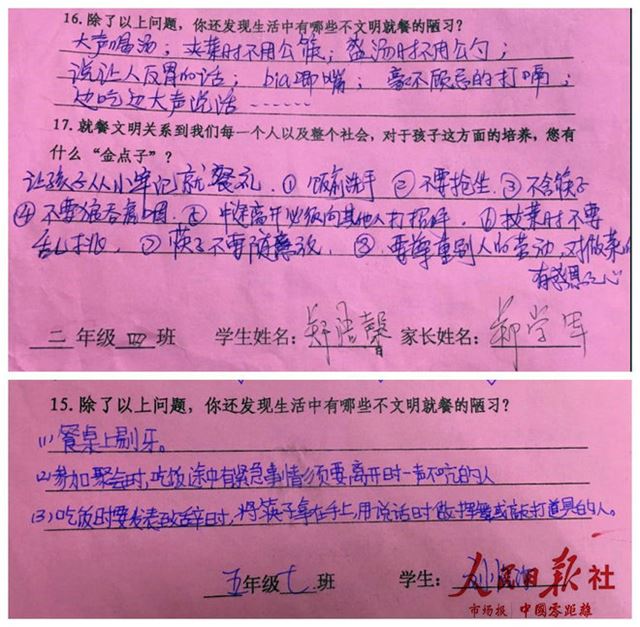 16. 除了以上问题，你还发现生活中有哪些不文明就餐的陋习？
大声喝汤；夹菜时不用公筷；盛汤时不用公勺；
说让人反胃的话；bia唧嘴；毫不顾忌的打嗝；
边吃边大声说话……
17. 就餐文明关系到我们每一个人以及整个社会，对于孩子这方面的培养，您有
什么“金点子”？
让孩子从小牢记就餐礼。①饭前洗手 ②不要抢坐 ③不含筷子
④不要狼吞虎咽 ⑤中途离开必须向其他人打招呼。⑥挟菜时不要
乱挑，⑦筷子不要随意放，⑧要尊重别人的劳动，对做菜的
有感恩之心
二年级四班 学生姓名：郑语馨 家长姓名：郑学军
15. 除了以上问题，你还发现生活中有哪些不文明就餐的陋习？
(1)餐桌上剔牙。
(2)参加聚会时，吃饭途中有紧急事情必须要离开时一声不吭的人
(3)吃饭时要发表致辞时，将筷子拿在手上，用说话时做挥舞或敲打道具的人。
五年级七班 学生：刘
人民日报社
市场报 中国零距离